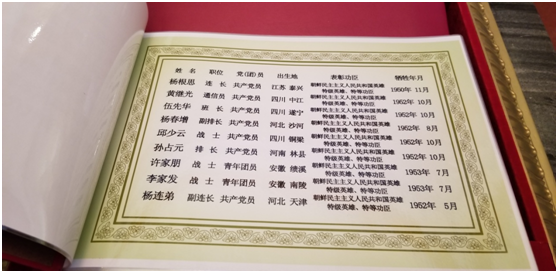 姓名 职位 党(团)员 出生地 表彰功臣 牺牲年月
杨根思 连长 共产党员 江苏 泰兴 朝鲜民主主义人民共和国英雄 特级英雄、特等功臣 1950年 11月
黄继光 通信员 共产党员 四川 中江 朝鲜民主主义人民共和国英雄 特级英雄、特等功臣 1952年 10月
伍先华 班长 共产党员 四川 遂宁 朝鲜民主主义人民共和国英雄 特级英雄、特等功臣 1952年 10月
杨春增 副排长 共产党员 河北 沙河 朝鲜民主主义人民共和国英雄 特级英雄、特等功臣 1952年 8月
邱少云 战士 共产党员 四川 铜梁 朝鲜民主主义人民共和国英雄 特级英雄、特等功臣 1952年 10月
孙占元 排长 共产党员 河南 林县 朝鲜民主主义人民共和国英雄 特级英雄、特等功臣 1952年 10月
许家朋 战士 青年团员 安徽 绩溪 朝鲜民主主义人民共和国英雄 特级英雄、特等功臣 1953年 7月
李家发 战士 青年团员 安徽 南陵 朝鲜民主主义人民共和国英雄 特级英雄、特等功臣 1953年 7月
杨连弟 副连长 共产党员 河北 天津 朝鲜民主主义人民共和国英雄 特级英雄、特等功臣 1952年 5月